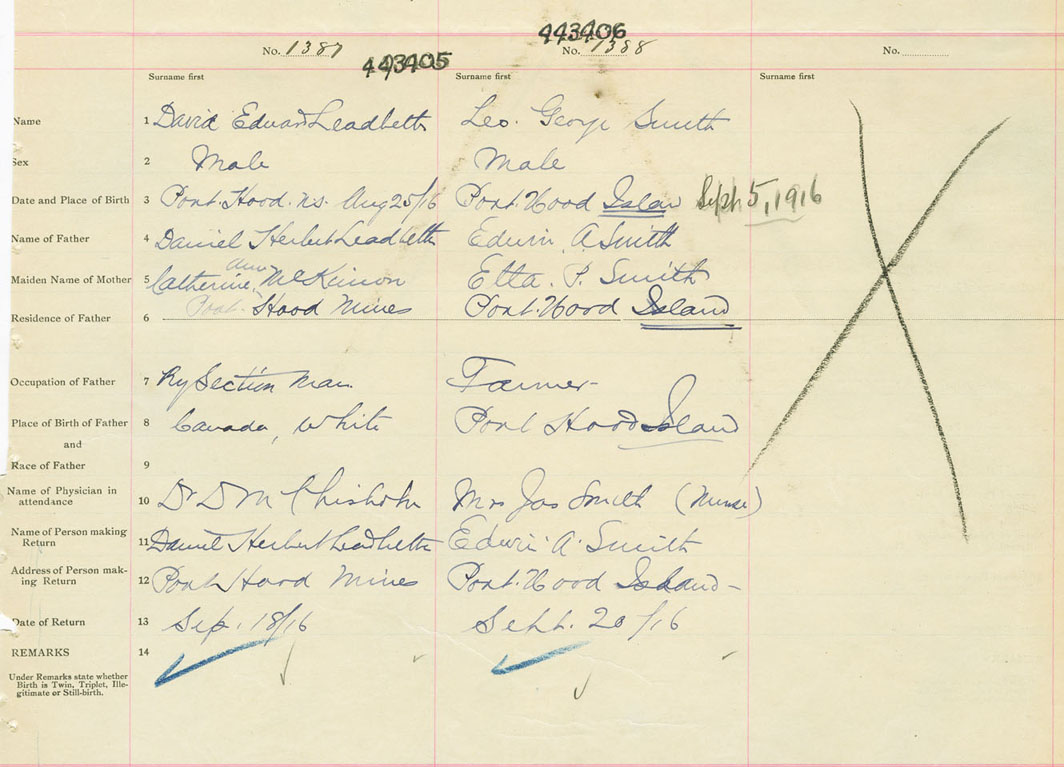 443406
No. 1387 No. 1388 No.
443405
Surname first Surname first Surname first
Name 1 David Edward Leadbett Leo. George Smith
Sex 2 Male Male
Date and Place of Birth 3 Port. Hood. n.s. Aug 25/16 Port. Hood Islan Sept 5, 1916
Name of Father 4 Daniel Herbert Leadbetter Edwin A Smith
Ann
Maiden Name of Mother 5 Catherine, McKinnon Etta. P. Smith
Port. Hood Mines Port. Hood Island
Residence of Father 6
Occupation of Father 7 Ry Section Man Farmer
Place of Birth of Father 8 Canada, White Port Hood Island
and
Race of Father 9
Name of Physician in
attendance 10 Dr D M Chisholm Mrs Jas Smith (Nurse)
Name of Person making
Return 11 Daniel Herbert Leadbetter Edwin A. Smith
Address of Person mak-
ing Return 12 Port Hood Mines Port. Hood Island -
Date of Return 13 Sep. 18/16 Sept. 20/16
REMARKS 14
Under Remarks state whether
Birth is Twin, Triplet, Ille-
gitimate or Still-birth.